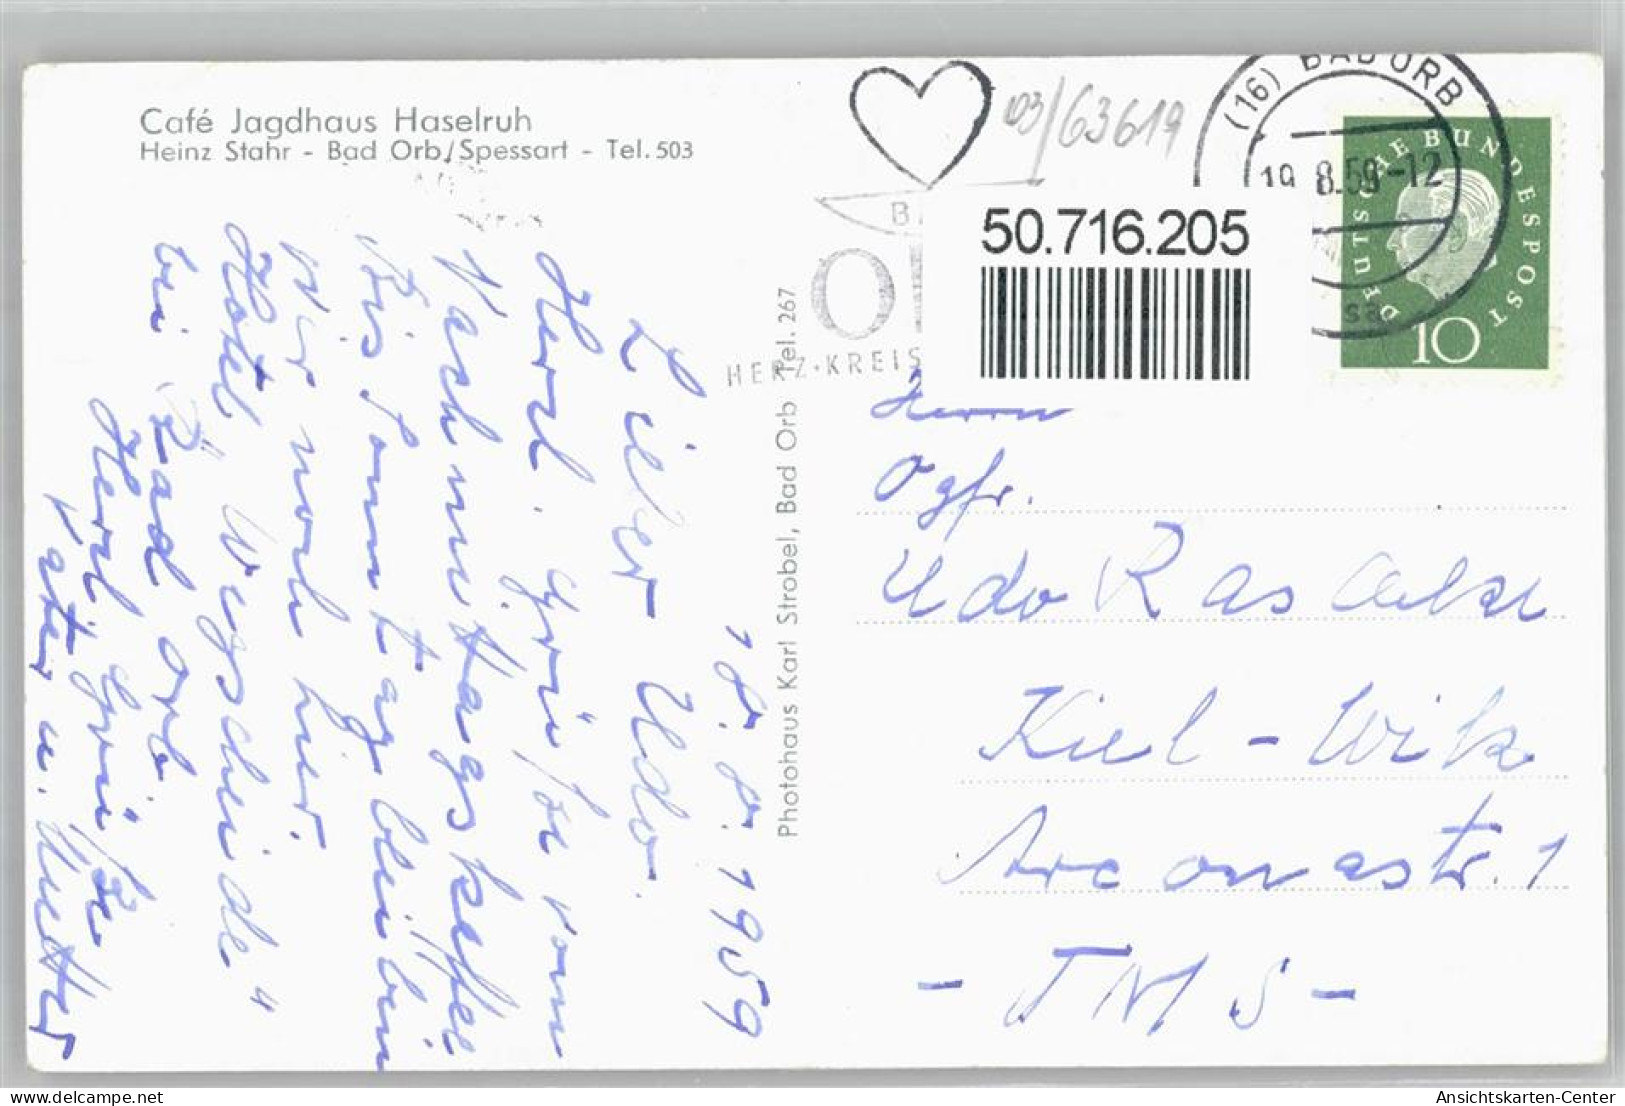 Café Jagdhaus Haselruh
Heinz Stahr - Bad Orb/Spessart - Tel. 503
18.8.1959
Lieber Udo.
Herzl. Grüße vom
Nachmittagskaffee
Bis Sonntag bleiben
wir noch hier.
Hotel "Wegscheide"
bei Bad Orb.
Herzl. Grüße
Vater u. Mutter
Photohaus Karl Strobel, Bad Orb Tel. 267
63619
(16) BAD ORB
19.8.59-12
HERZ·KREIS
50.716.205
DEUTSCHE BUNDESPOST
10
Herrn
Ogfr.
Udo
Kiel-Wik
Arconastr. 1
- TMS -
Ansichtskarten-Center